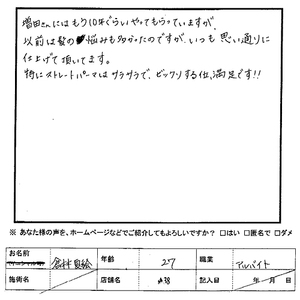 増田さんにはもう10年ぐらいやってもらっていますが、
以前は髪の悩みも多かったのですが、いつも思い通りに
仕上げて頂いてます。
特にストレートパーマはサラサラで、ビックリする位、満足です!!
※ あなた様の声を、ホームページなどでご紹介してもよろしいですか? □はい □匿名で □ダメ
お名前 年齢 27 職業 アルバイト
施術名 店舗名 記入日 年 月 日